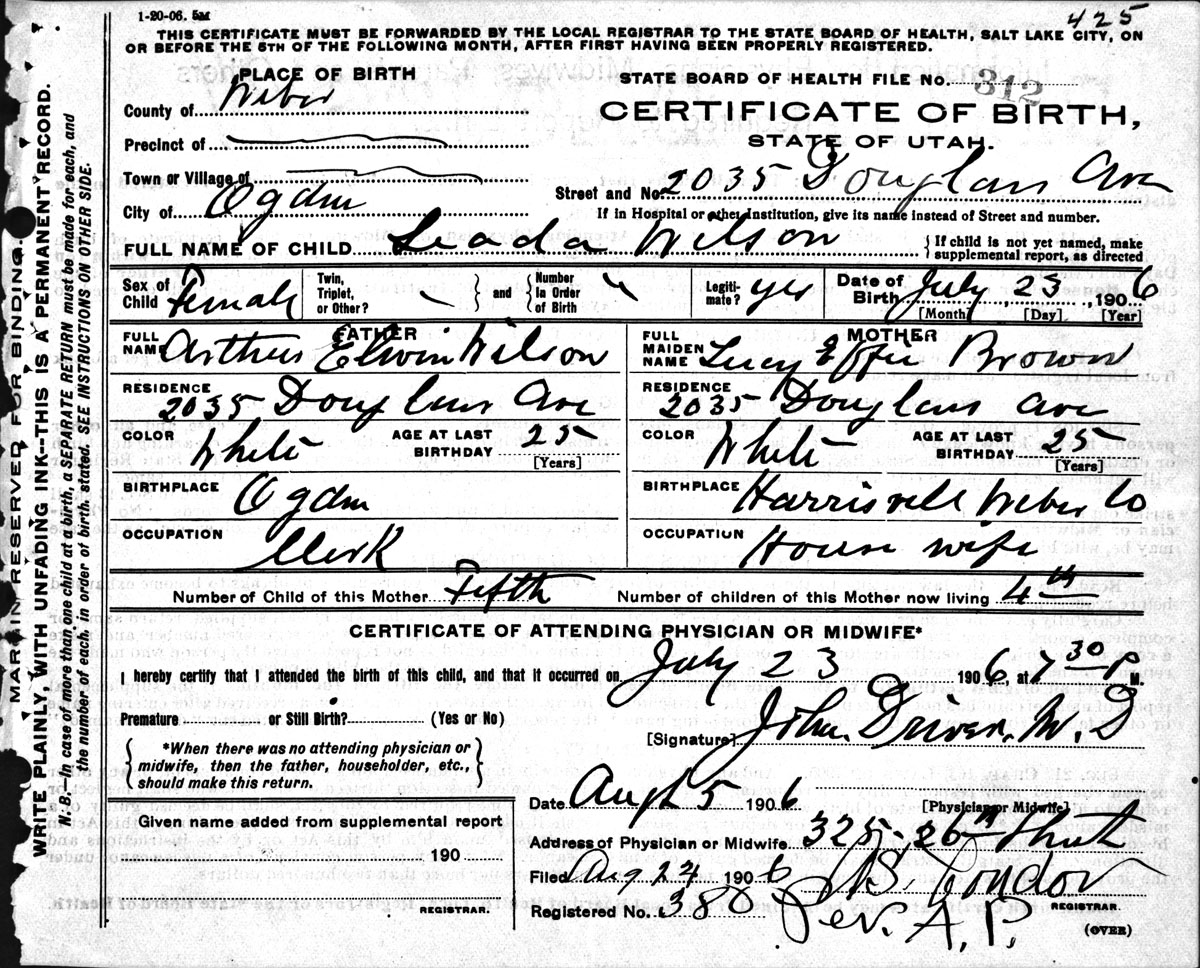 1-20-06. 5M
425
THIS CERTIFICATE MUST BE FORWARDED BY THE LOCAL REGISTRAR TO THE STATE BOARD OF HEALTH, SALT LAKE CITY, ON
OR BEFORE THE 5TH OF THE FOLLOWING MONTH, AFTER FIRST HAVING BEEN PROPERLY REGISTERED.
PLACE OF BIRTH
STATE BOARD OF HEALTH FILE NO. 312
County of Weber
CERTIFICATE OF BIRTH,
Precinct of
STATE OF UTAH.
Town or Village of
Street and No. 2035 Douglas Ave
City of Ogden
If in Hospital or other Institution, give its name instead of Street and number.
FULL NAME OF CHILD Leada Wilson
{If child is not yet named, make
supplemental report, as directed
Sex of Child Female
Twin, Triplet, or Other?
} and {
Number in Order of Birth
Legitimate? yes
Date of Birth July 23, 1906
[Month] [Day] [Year]
FATHER
MOTHER
FULL NAME Arthur Elwin Wilson
FULL MAIDEN NAME Lucy Effie Brown
RESIDENCE 2035 Douglas Ave
RESIDENCE 2035 Douglas Ave
COLOR White AGE AT LAST BIRTHDAY 25 [Years]
COLOR White AGE AT LAST BIRTHDAY 25 [Years]
BIRTHPLACE Ogden
BIRTHPLACE Harrisvill Weber Co
OCCUPATION Clerk
OCCUPATION House wife
Number of Child of this Mother Fifth Number of children of this Mother now living 4th
CERTIFICATE OF ATTENDING PHYSICIAN OR MIDWIFE*
I hereby certify that I attended the birth of this child, and that it occurred on July 23 1906, at 7 30 P M.
Premature or Still Birth? (Yes or No)
[Signature] John Driver, M. D
{*When there was no attending physician or
midwife, then the father, householder, etc.,
should make this return.}
Date Augt 5 1906 [Physician or Midwife]
Given name added from supplemental report
Address of Physician or Midwife 325-26th Street
190
Filed Aug 24 1906
REGISTRAR.
Registered No. 380
REGISTRAR.
Per. A. P.
(OVER)
MARGIN RESERVED FOR BINDING.
WRITE PLAINLY, WITH UNFADING INK--THIS IS A PERMANENT RECORD.
N. B.--In case of more than one child at a birth, a SEPARATE RETURN must be made for each, and
the number of each, in order of birth, stated. SEE INSTRUCTIONS ON OTHER SIDE.